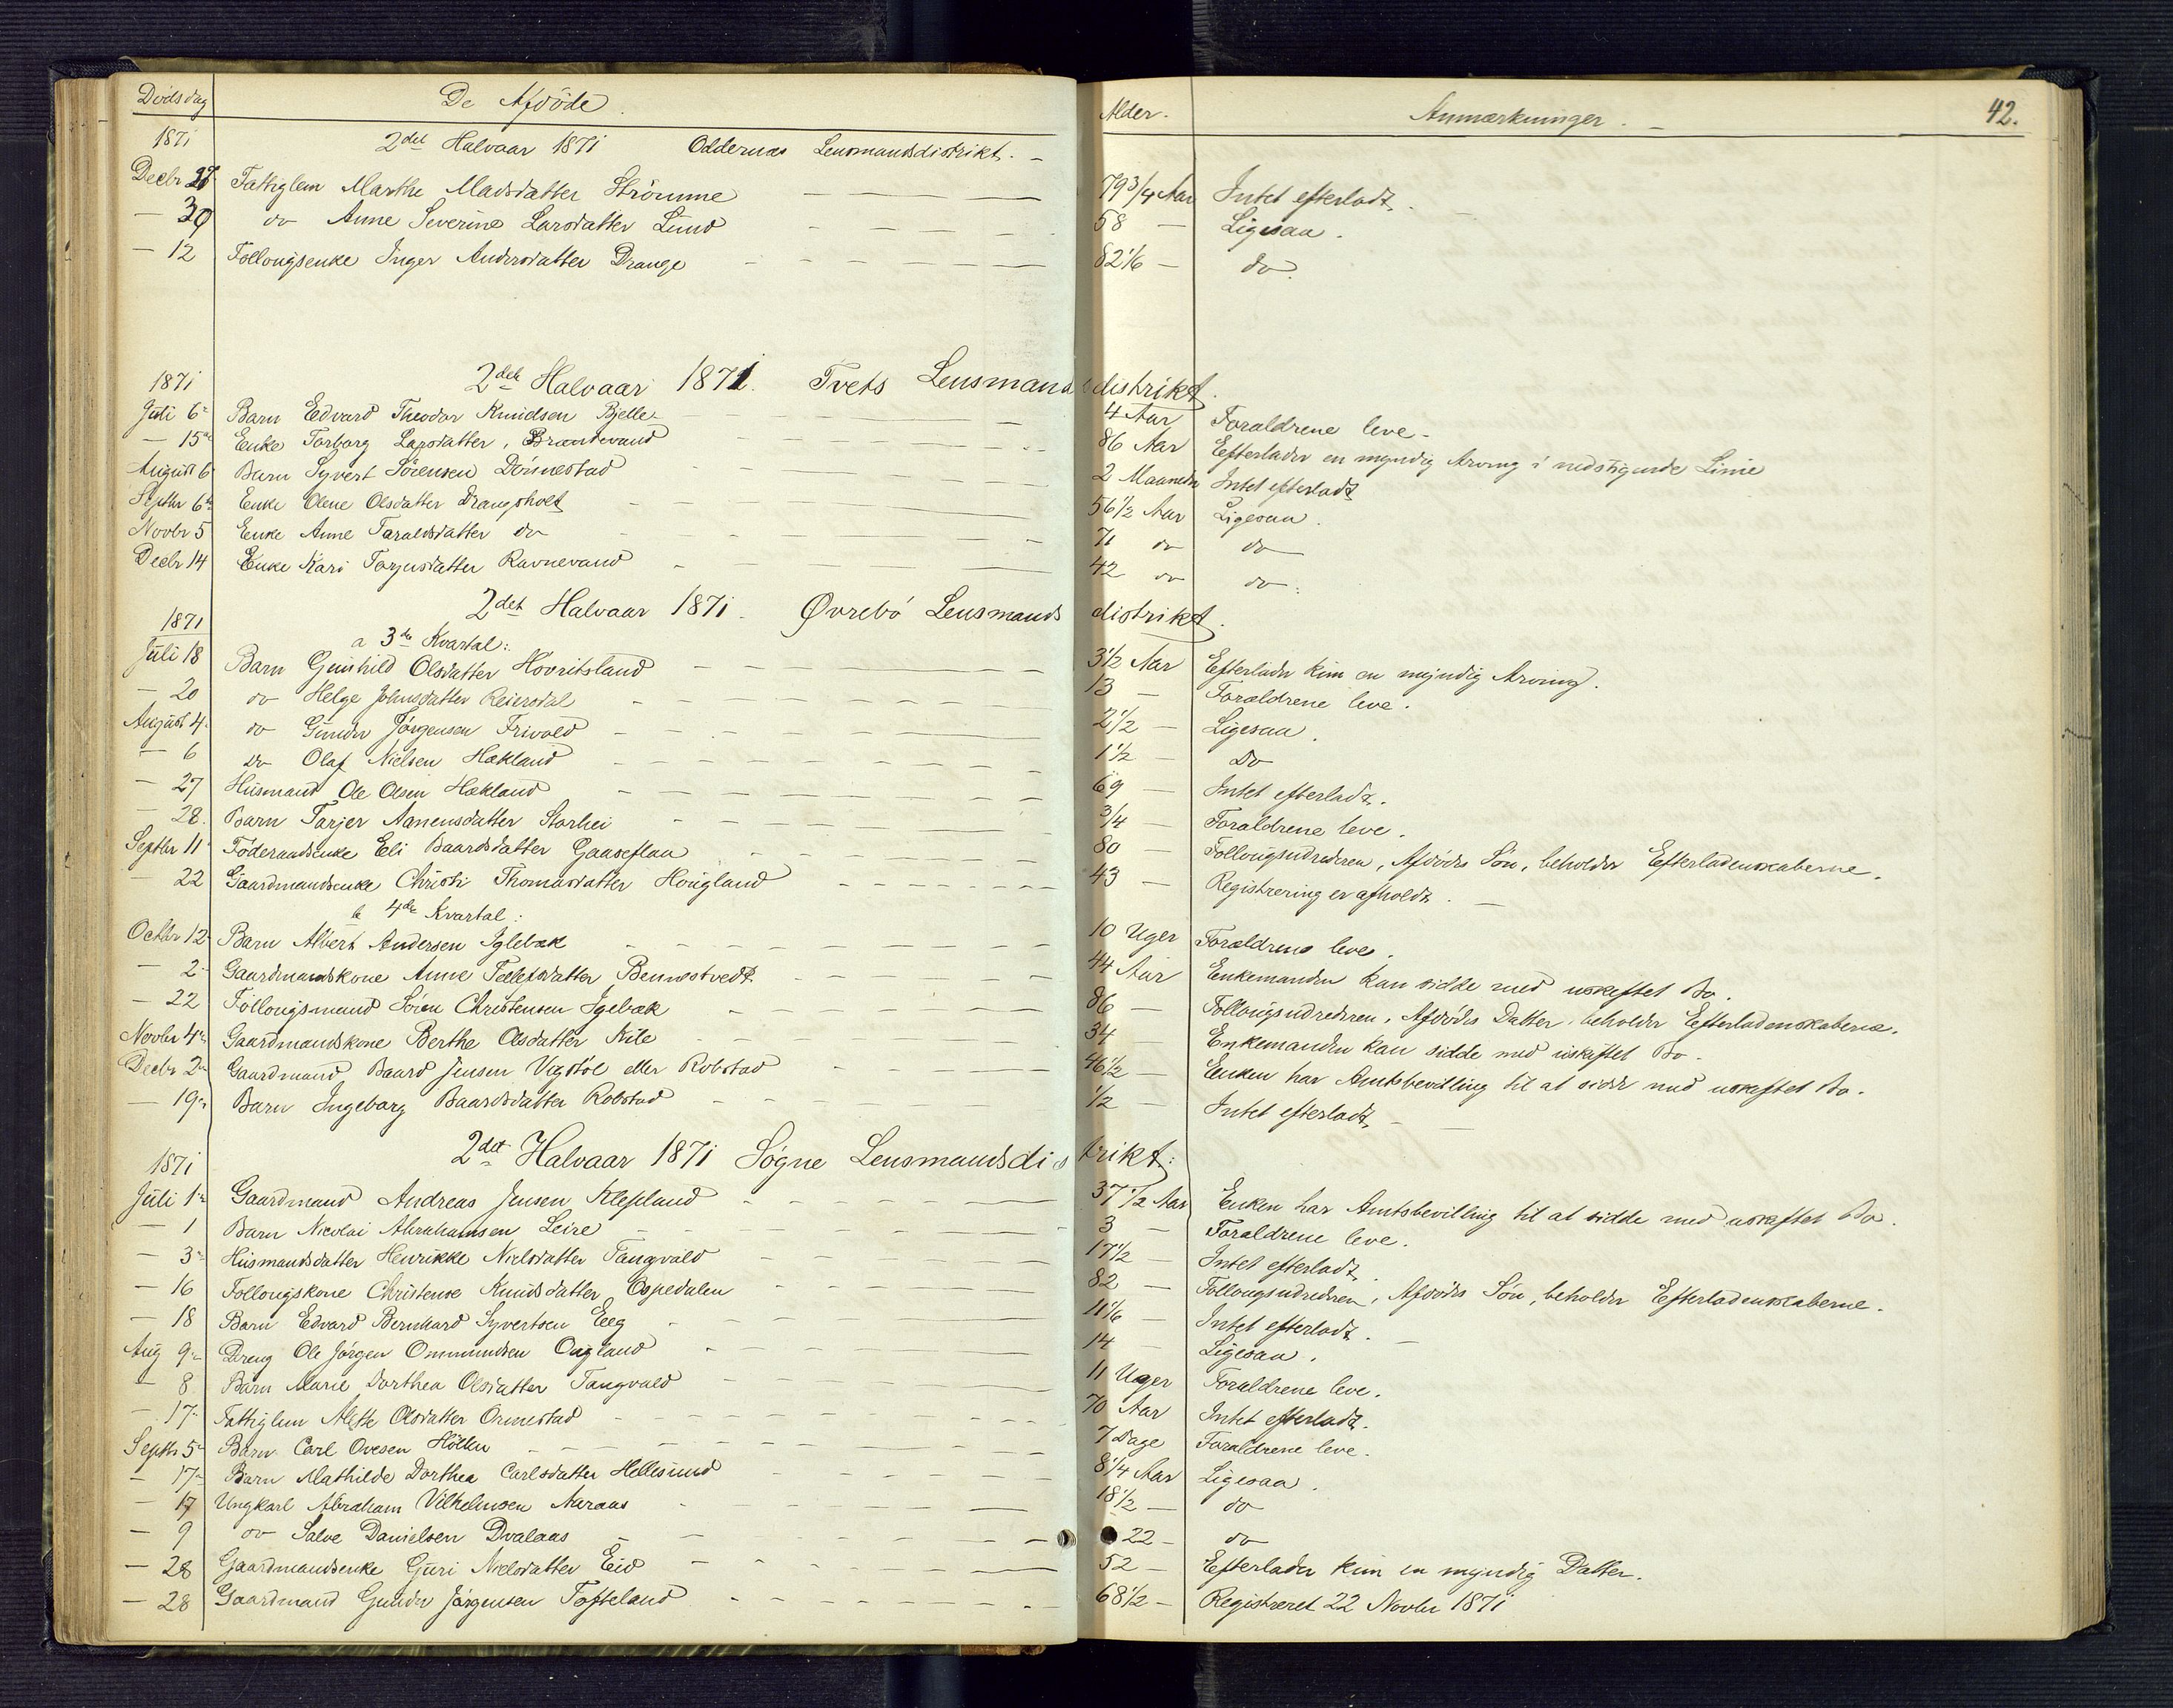 Dödsdag De Afdöde. Alder. Anmærkninger. 42.
1871 2det Halvaar 1871 Oddernæs Lensmandsdistrikt.
Decbr 27 Fattiglem Marthe Madsdatter Strömme 79 3/4 Aar Intet efterladt.
— 30 do Anne Severine Larsdatter Lund 58 — Ligesaa.
— 12 Föllougsenke Inger Andersdatter Drange 82 1/6 — do.
1871 2det Halvaar 1871. Tvets Lensmandsdistrikt.
Juli 6 Barn Edvard Theodor Knudsen Bjelle 4 Aar Foraldrene leve.
— 15 Enke Torborg Larsdatter, Brandevand 86 Aar Efterlader en myndig Arving i nedstigende Linie
August 6 Barn Syvert Sörensen Dönnestad 2 Maaneder Intet efterladt
Septbr 6 Enke Olene Olsdatter Drangsholt 56 1/2 Aar Ligesaa.
Novbr 5 Enke Anne Taraldsdatter do 71 do do
Decbr 14 Enke Kari Torjusdatter Ravnevand 42 do do.
1871 2det Halvaar 1871. Øvrebö Lensmandsdistrikt.
a 3de Kvartal:
Juli 18 Barn Gunhild Olsdatter Hovritsland 3 1/2 Aar Efterlader kun en myndig Arving.
— 20 do Helge Johnsdatter Reiersdal 13 — Forældrene leve.
August 4 do Gunder Jörgensen Frivold 2 1/2 — Ligesaa.
— 6 do Olaf Nielsen Hækland 1 1/2 — Do
— 27 Husmand Ole Olsen Hækland 69 — Intet efterladt.
— 28. Barn Tarjer Aanensdatter Storhei 3/4 — Foraldrene leve.
Septbr 11 Föderaadsenke Eli Baardsdatter Gaaseflaa 80 — Follougsudrederen, Afdödes Sön, beholder Efterladenskaberne.
— 22 Gaardmandsenke Christi Thomasdatter Hougland 43 — Registrering er afholdt.
b 4de Kvartal:
Octbr 12 Barn Albert Andersen Iglebæk 10 Uger Foraldrene leve.
— 2 Gaardmandskone Anne Tellefsdatter Bennestvedt 44 Aar Enkemanden kan sidde med uskiftet Bo.
— 22 Föllougsmand Sören Christensen Igebæk 86 — Follougsudrederen, Afdödes Datter, beholder Efterladenskaberne.
Novbr 4 Gaardmandskone Berthe Olsdatter Kile 34 Enkemanden kan sidde med uskiftet Bo.
Decbr 2 Gaardmand Baard Jensen Vigstöl eller Robstad 46 1/2 — Enken har Amtsbevilling til at sidde med uskiftet Bo.
— 19 Barn Ingeborg Baardsdatter Robstad 1/2 — Intet efterladt.
1871 2det Halvaar 1871 Søgne Lensmandsdistrikt:
Juli 1 Gaardmand Andreas Jensen Klepland 37 1/2 Aar Enken har Amtsbevilling til at sidde med uskiftet Bo.
— 1 Barn Nicolai Abrahamsen Leire 3 — Foraldrene leve.
— 3 Husmandsdatter Henrikke Nielsdatter Tangvald 17 1/2 — Intet efterladt.
— 16 Föllougskone Christense Knudsdatter Ospedalen 82 — Follougsudrederen, Afdödes Sön, beholder Efterladenskaberne.
— 18 Barn Edvard Bernhard Syvertsen Eeg 11 1/6 — Intet efterladt.
Aug 9 Dreng Ole Jörgen Ommundsen Ougland 14 — Ligesaa.
— 8 Barn Marie Dorthea Olsdatter Tangvald 11 Uger Foraldrene leve.
— 17 Fattiglem Alette Olsdatter Ormestad 70 Aar Intet efterladt.
Septbr 5 Barn Carl Ovesen Höllen 7 Dage Foraldrene leve.
— 17 Barn Mathilde Dorthea Carlsdatter Hellesund 8 1/4 Aar Ligesaa.
— 17 Ungkarl Abraham Vilhelmsen Aaraas 18 1/2 — do
— 9 do Salve Danielsen Dvalaas 22 — do
— 28 Gaardmandsenke Guri Nielsdatter Eid 52 — Efterlader kun en myndig Datter.
— 28 Gaardmand Gunder Jörgensen Tofteland 68 1/2 — Registreret 22 Novbr 1871